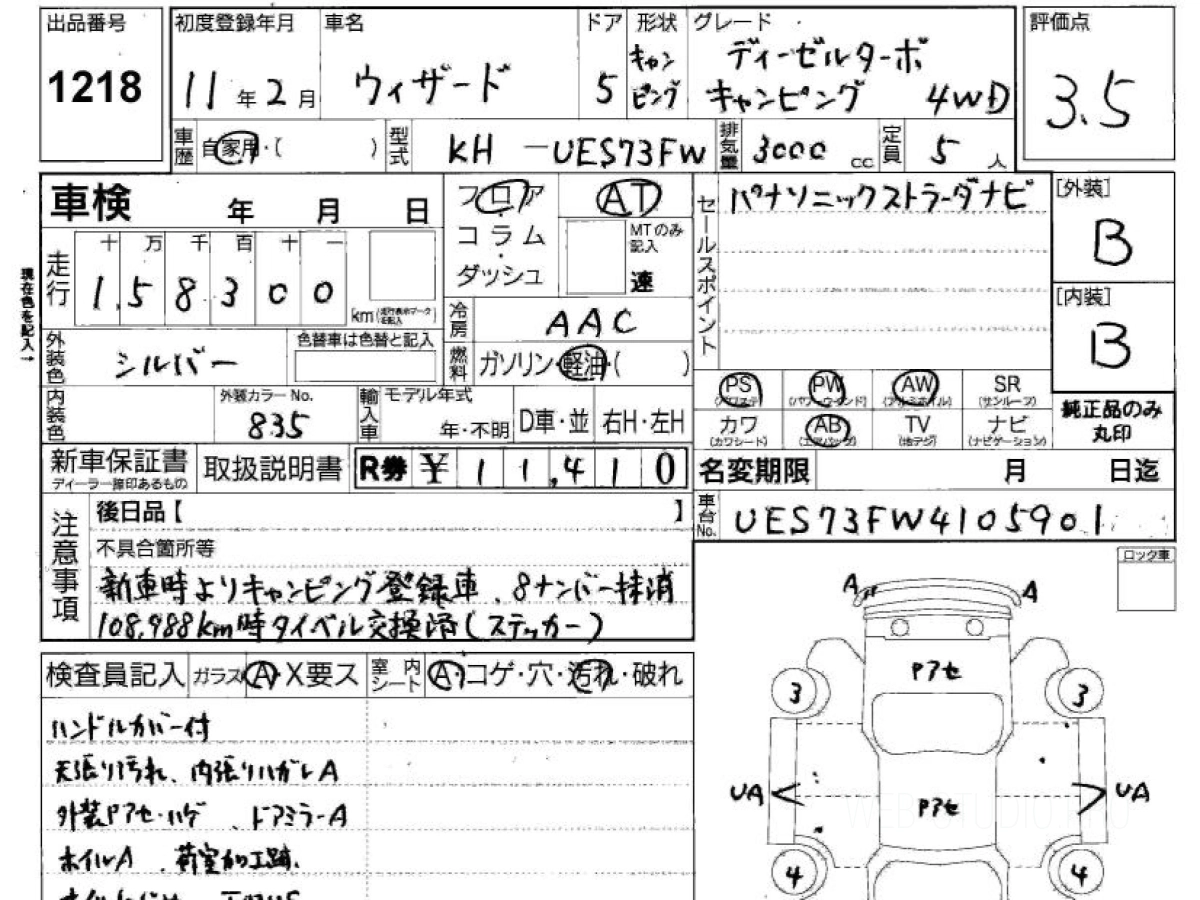 出品番号 初度登録年月 車名 ドア 形状 グレード 評価点
1218 11年2月 ウィザード 5 キャンピング ディーゼルターボ
キャンピング 4WD
3.5
車歴 自家用・( ) 型式 KH -UES73FW 排気量 3000 cc 定員 5 人
車検 年 月 日 フロア AT セールスポイント パナソニックストラーダナビ [外装]
B
コラム MTのみ記入
ダッシュ 速
現在色を記入→
走行 十 万 千 百 十 一
1,58300 km
[内装]
B
冷房 AAC
外装色 シルバー 色替車は色替と記入 燃料 ガソリン・軽油・( )
内装色 外装カラーNo. 835 輸入車 モデル年式 年・不明 D車・並 右H・左H
PS (パワステ) PW (パワーウインド) AW (アルミホイル) SR (サンルーフ)
カワ (カワシート) AB (エアバッグ) TV (地デジ) ナビ (ナビゲーション)
純正品のみ
丸印
新車保証書 ディーラー捺印あるもの 取扱説明書 R券 ¥11,410 名変期限 月 日迄
注意事項 後日品【 】 車台No. UES73FW4105901
不具合箇所等 ロック車
新車時よりキャンピング登録車、8ナンバー抹消
108,988km時タイベル交換済(ステッカー)
A A
検査員記入 ガラス A・X要ス 室内シート A・コゲ・穴・汚れ・破れ
Pアセ
3 3
ハンドルカバー付
天張り汚れ、内張りハガレA
UA Pアセ UA
外装Pアセ・ハゲ、ドアミラーA
ホイルA、荷室加工跡、
4 4